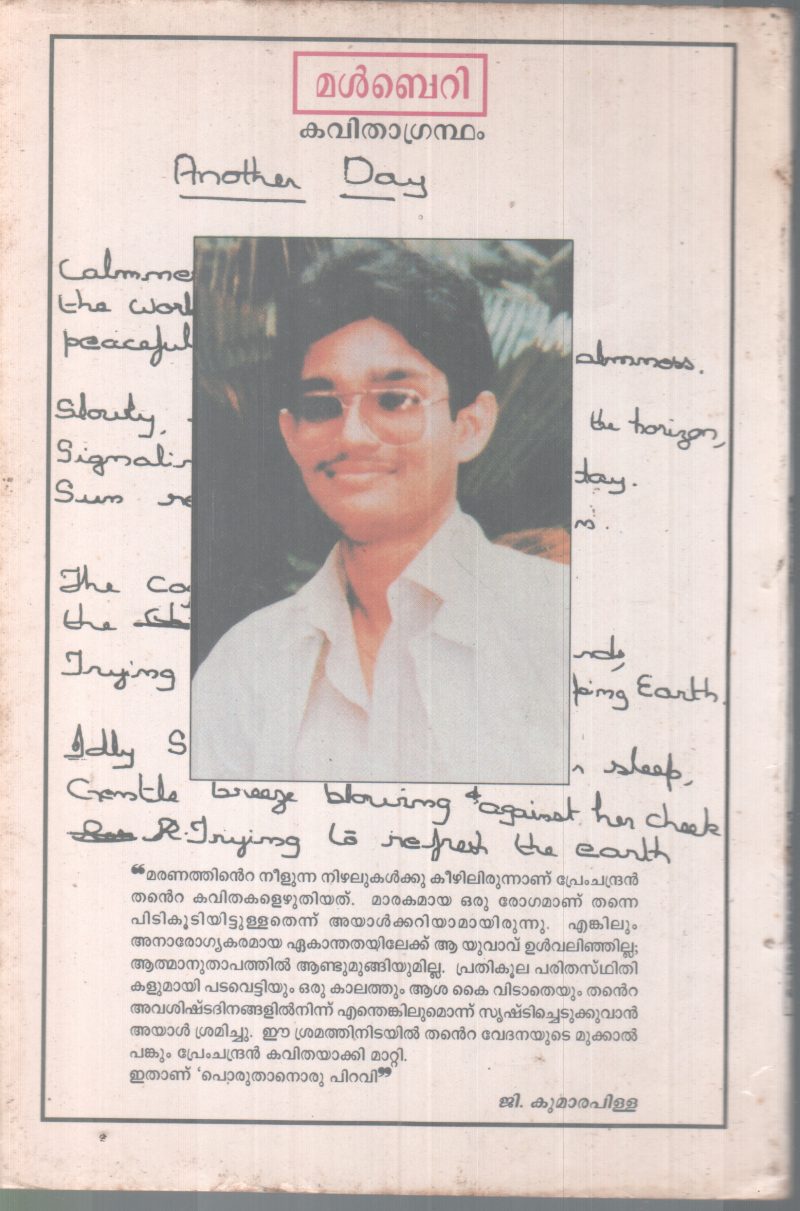 മൾബെറി
കവിതാഗ്രന്ഥം
Another Day
Calmne
the worl
peaceful
almness.
Slowly,
the horizon,
Signalin
day.
Sun re
n.
The co
the
Trying
nds,
ping Earth.
Idly S
sleep,
Gentle breeze blowing against her cheek
Trying to refresh the earth
❝മരണത്തിൻെറ നീളുന്ന നിഴലുകൾക്കു കീഴിലിരുന്നാണ് പ്രേംചന്ദ്രൻ
തൻെറ കവിതകളെഴുതിയത്. മാരകമായ ഒരു രോഗമാണ് തന്നെ
പിടികൂടിയിട്ടുള്ളതെന്ന് അയാൾക്കറിയാമായിരുന്നു. എങ്കിലും
അനാരോഗ്യകരമായ ഏകാന്തതയിലേക്ക് ആ യുവാവ് ഉൾവലിഞ്ഞില്ല;
ആത്മാനുതാപത്തിൽ ആണ്ടുമുങ്ങിയുമില്ല. പ്രതികൂല പരിതസ്ഥിതി
കളുമായി പടവെട്ടിയും ഒരു കാലത്തും ആശ കൈ വിടാതെയും തൻെറ
അവശിഷ്ടദിനങ്ങളിൽനിന്ന് എന്തെങ്കിലുമൊന്ന് സൃഷ്ടിച്ചെടുക്കുവാൻ
അയാൾ ശ്രമിച്ചു. ഈ ശ്രമത്തിനിടയിൽ തൻെറ വേദനയുടെ മുക്കാൽ
പങ്കും പ്രേംചന്ദ്രൻ കവിതയാക്കി മാറ്റി.
ഇതാണ് 'പൊരുതാനൊരു പിറവി'❞
ജി. കുമാരപിള്ള